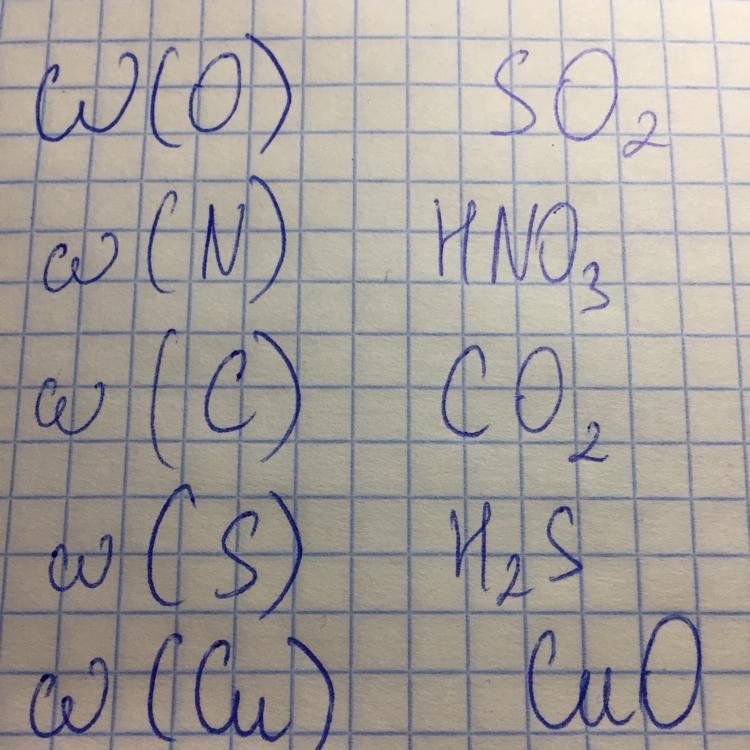 ω(O) SO₂
ω(N) HNO₃
ω(C) CO₂
ω(S) H₂S
ω(Cu) CuO